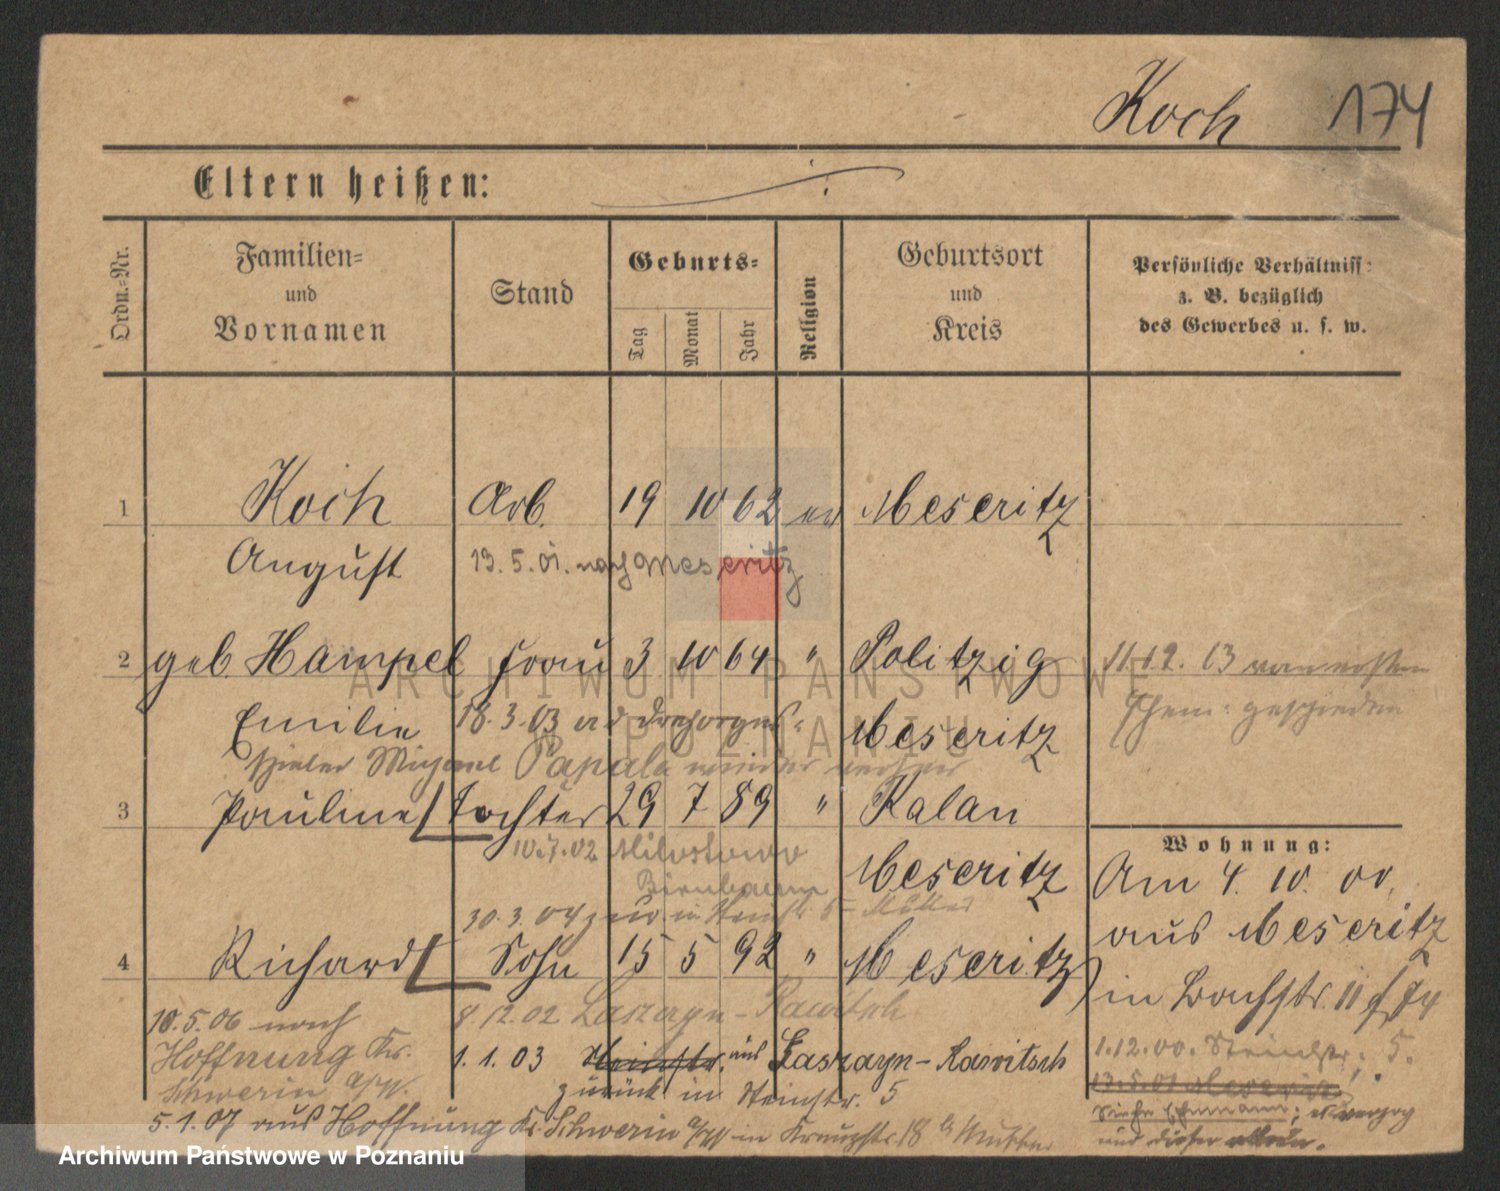 Koch 174
Eltern heißen:
Ordn.-Nr.
Familien-
und
Vornamen
Stand
Geburts-
Tag
Monat
Jahr
Religion
Geburtsort
und
Kreis
Persönliche Verhältniss:
z. B. bezüglich
des Gewerbes u. s. w.
1 Koch Arb. 19 10 62 ev Meseritz
August 13. 5. 01. nach Meseritz
2 geb. Hampel Frau 3 10 64 " Politzig
11.12. 03 vom ersten
Ehem: geschieden
Emilie 18. 3. 03 Meseritz
Michael Papala
3 Pauline Tochter 29 7 89 " Kalau
10.7.02 Milostowo
Birnbaum
Meseritz
30. 3. 04 zur. in Steinstr. 5
4 Richard Sohn 15 5 92 " Meseritz
Wohnung:
Am 4. 10. 00,
aus Meseritz
in Bachstr. 11
1.12.00. Steinstr. 5.
13.5.01 Meseritz
Siehe Ehemann; verzog
und dieser allein.
10. 5. 06 nach
Hoffnung Kr.
Schwerin a/W.
8. 12. 02 Laszczyn - Rawitsch
1. 1. 03 Steinstr. aus Laszczyn - Rawitsch
zurück in Steinstr. 5
5. 1. 07 aus Hoffnung Kr. Schwerin a/W in Kreuzstr. 18 Mutter
ARCHIWUM PAŃSTWOWE
POZNANIU
Archiwum Państwowe w Poznaniu